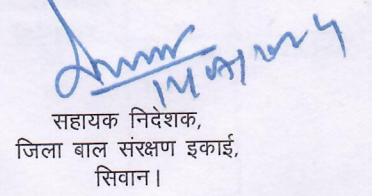 सहायक निदेशक,
जिला बाल संरक्षण इकाई,
सिवान।